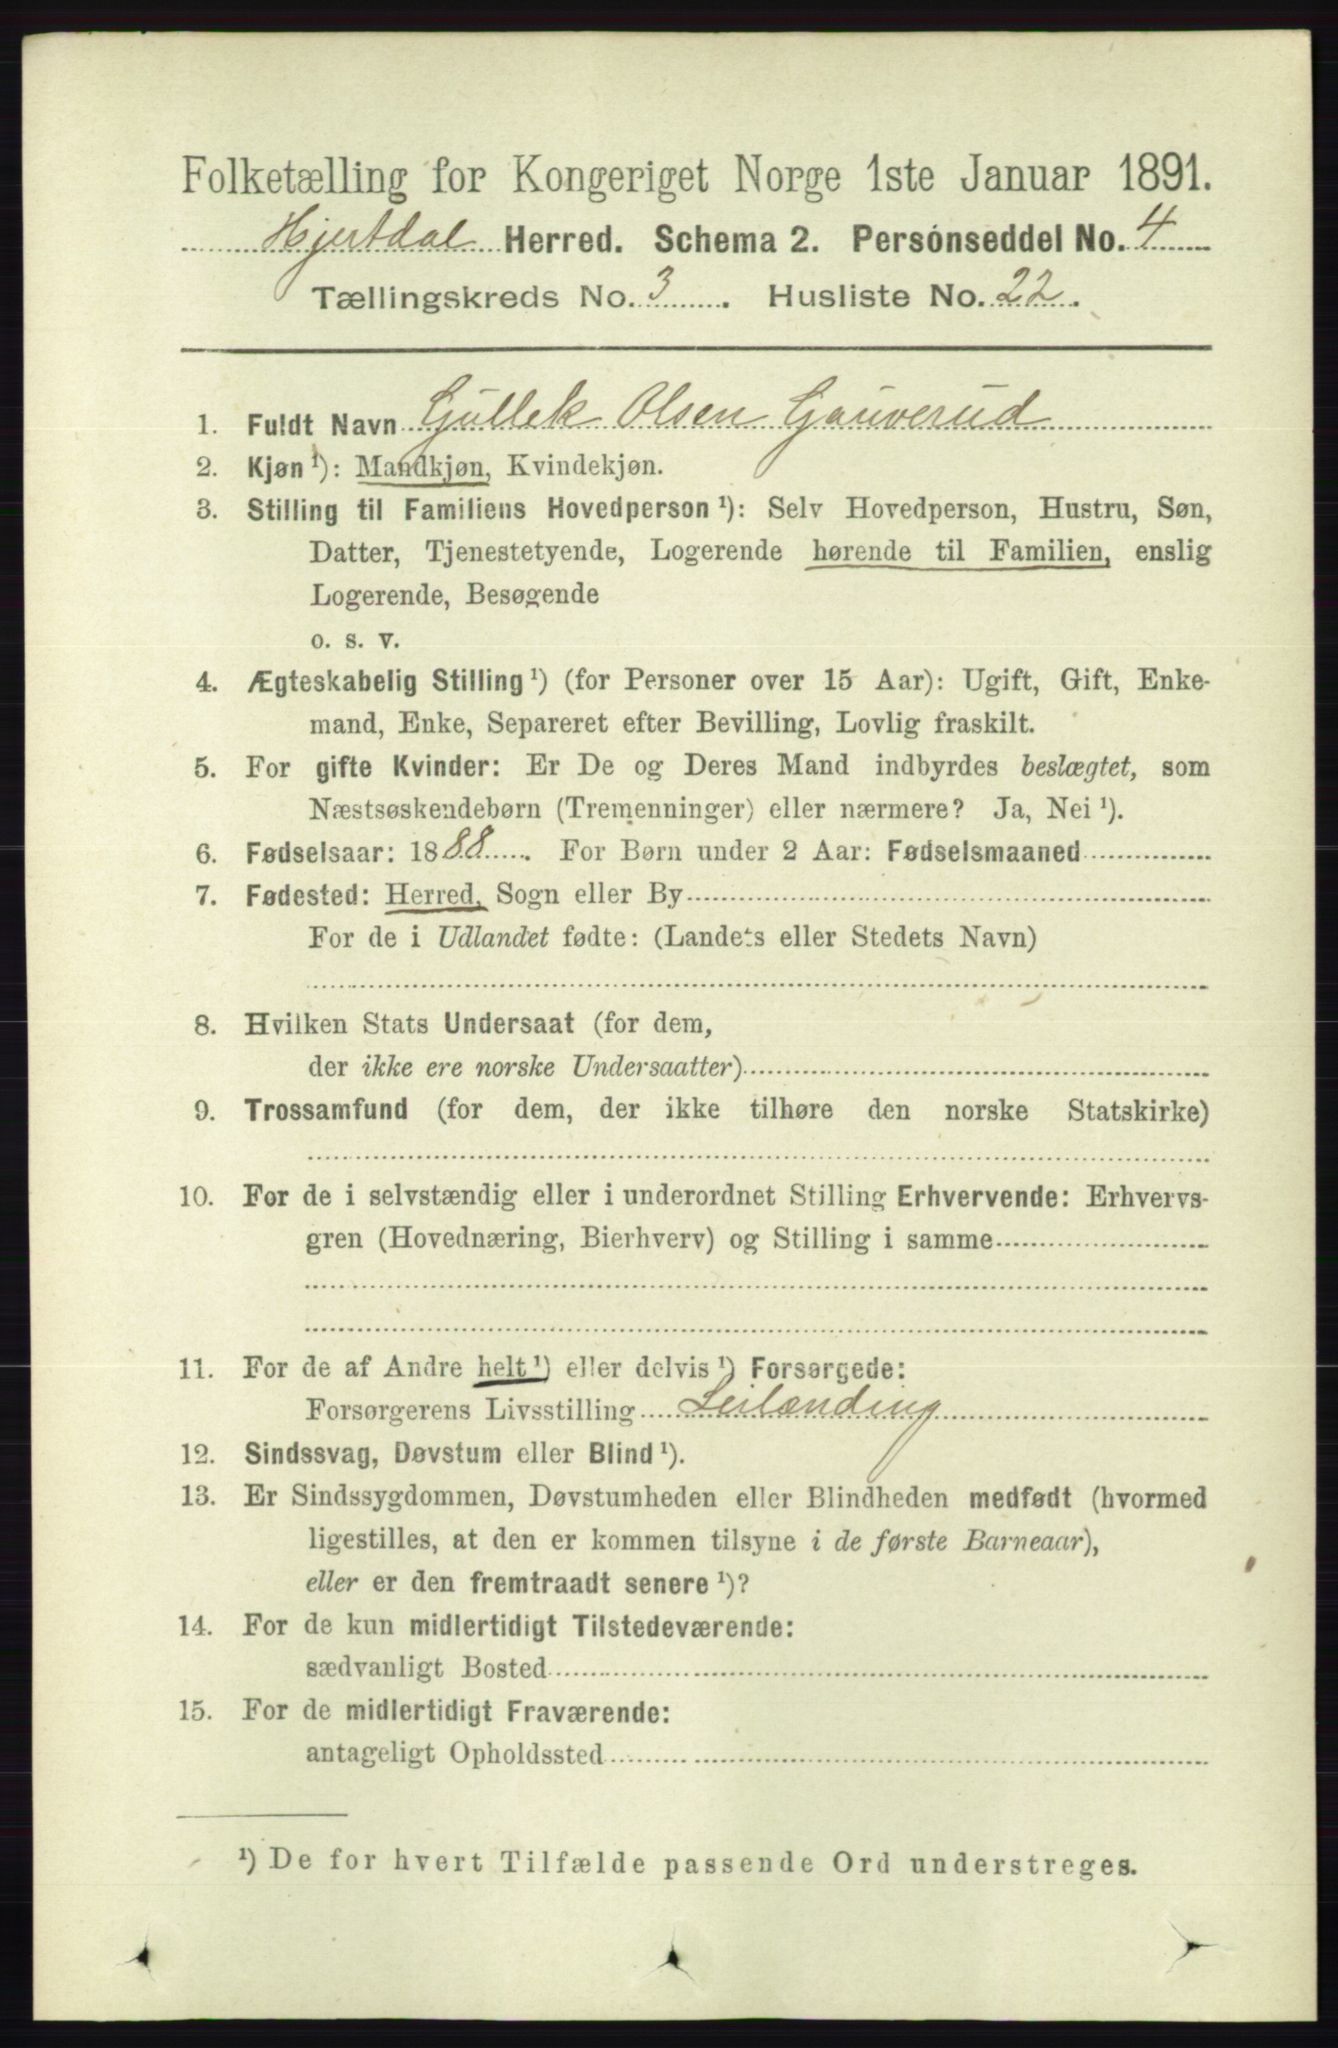 Folketælling for Kongeriget Norge 1ste Januar 1891.
Hjertdal Herred. Schema 2. Persónseddel No. 4
Tællingskreds No. 3. Husliste No. 22.
1. Fuldt Navn Gullek Olsen Gauverud
2. Kjøn ¹): Mandkjøn, Kvindekjøn.
3. Stilling til Familiens Hovedperson ¹): Selv Hovedperson, Hustru, Søn,
Datter, Tjenestetyende, Logerende hørende til Familien, enslig
Logerende, Besøgende
o. s. v.
4. Ægteskabelig Stilling ¹) (for Personer over 15 Aar): Ugift, Gift, Enke-
mand, Enke, Separeret efter Bevilling, Lovlig fraskilt.
5. For gifte Kvinder: Er De og Deres Mand indbyrdes beslægtet, som
Næstsøskendebørn (Tremenninger) eller nærmere? Ja, Nei ¹).
6. Fødselsaar: 1888. For Børn under 2 Aar: Fødselsmaaned
7. Fødested: Herred, Sogn eller By
For de i Udlandet fødte: (Landets eller Stedets Navn)
8. Hvilken Stats Undersaat (for dem,
der ikke ere norske Undersaatter)
9. Trossamfund (for dem, der ikke tilhøre den norske Statskirke)
10. For de i selvstændig eller i underordnet Stilling Erhvervende: Erhvervs-
gren (Hovednæring, Bierhverv) og Stilling i samme
11. For de af Andre helt ¹) eller delvis ¹) Forsørgede:
Forsørgerens Livsstilling Leilænding
12. Sindssvag, Døvstum eller Blind ¹).
13. Er Sindssygdommen, Døvstumheden eller Blindheden medfødt (hvormed
ligestilles, at den er kommen tilsyne i de første Barneaar),
eller er den fremtraadt senere ¹)?
14. For de kun midlertidigt Tilstedeværende:
sædvanligt Bosted
15. For de midlertidigt Fraværende:
antageligt Opholdssted
¹) De for hvert Tilfælde passende Ord understreges.